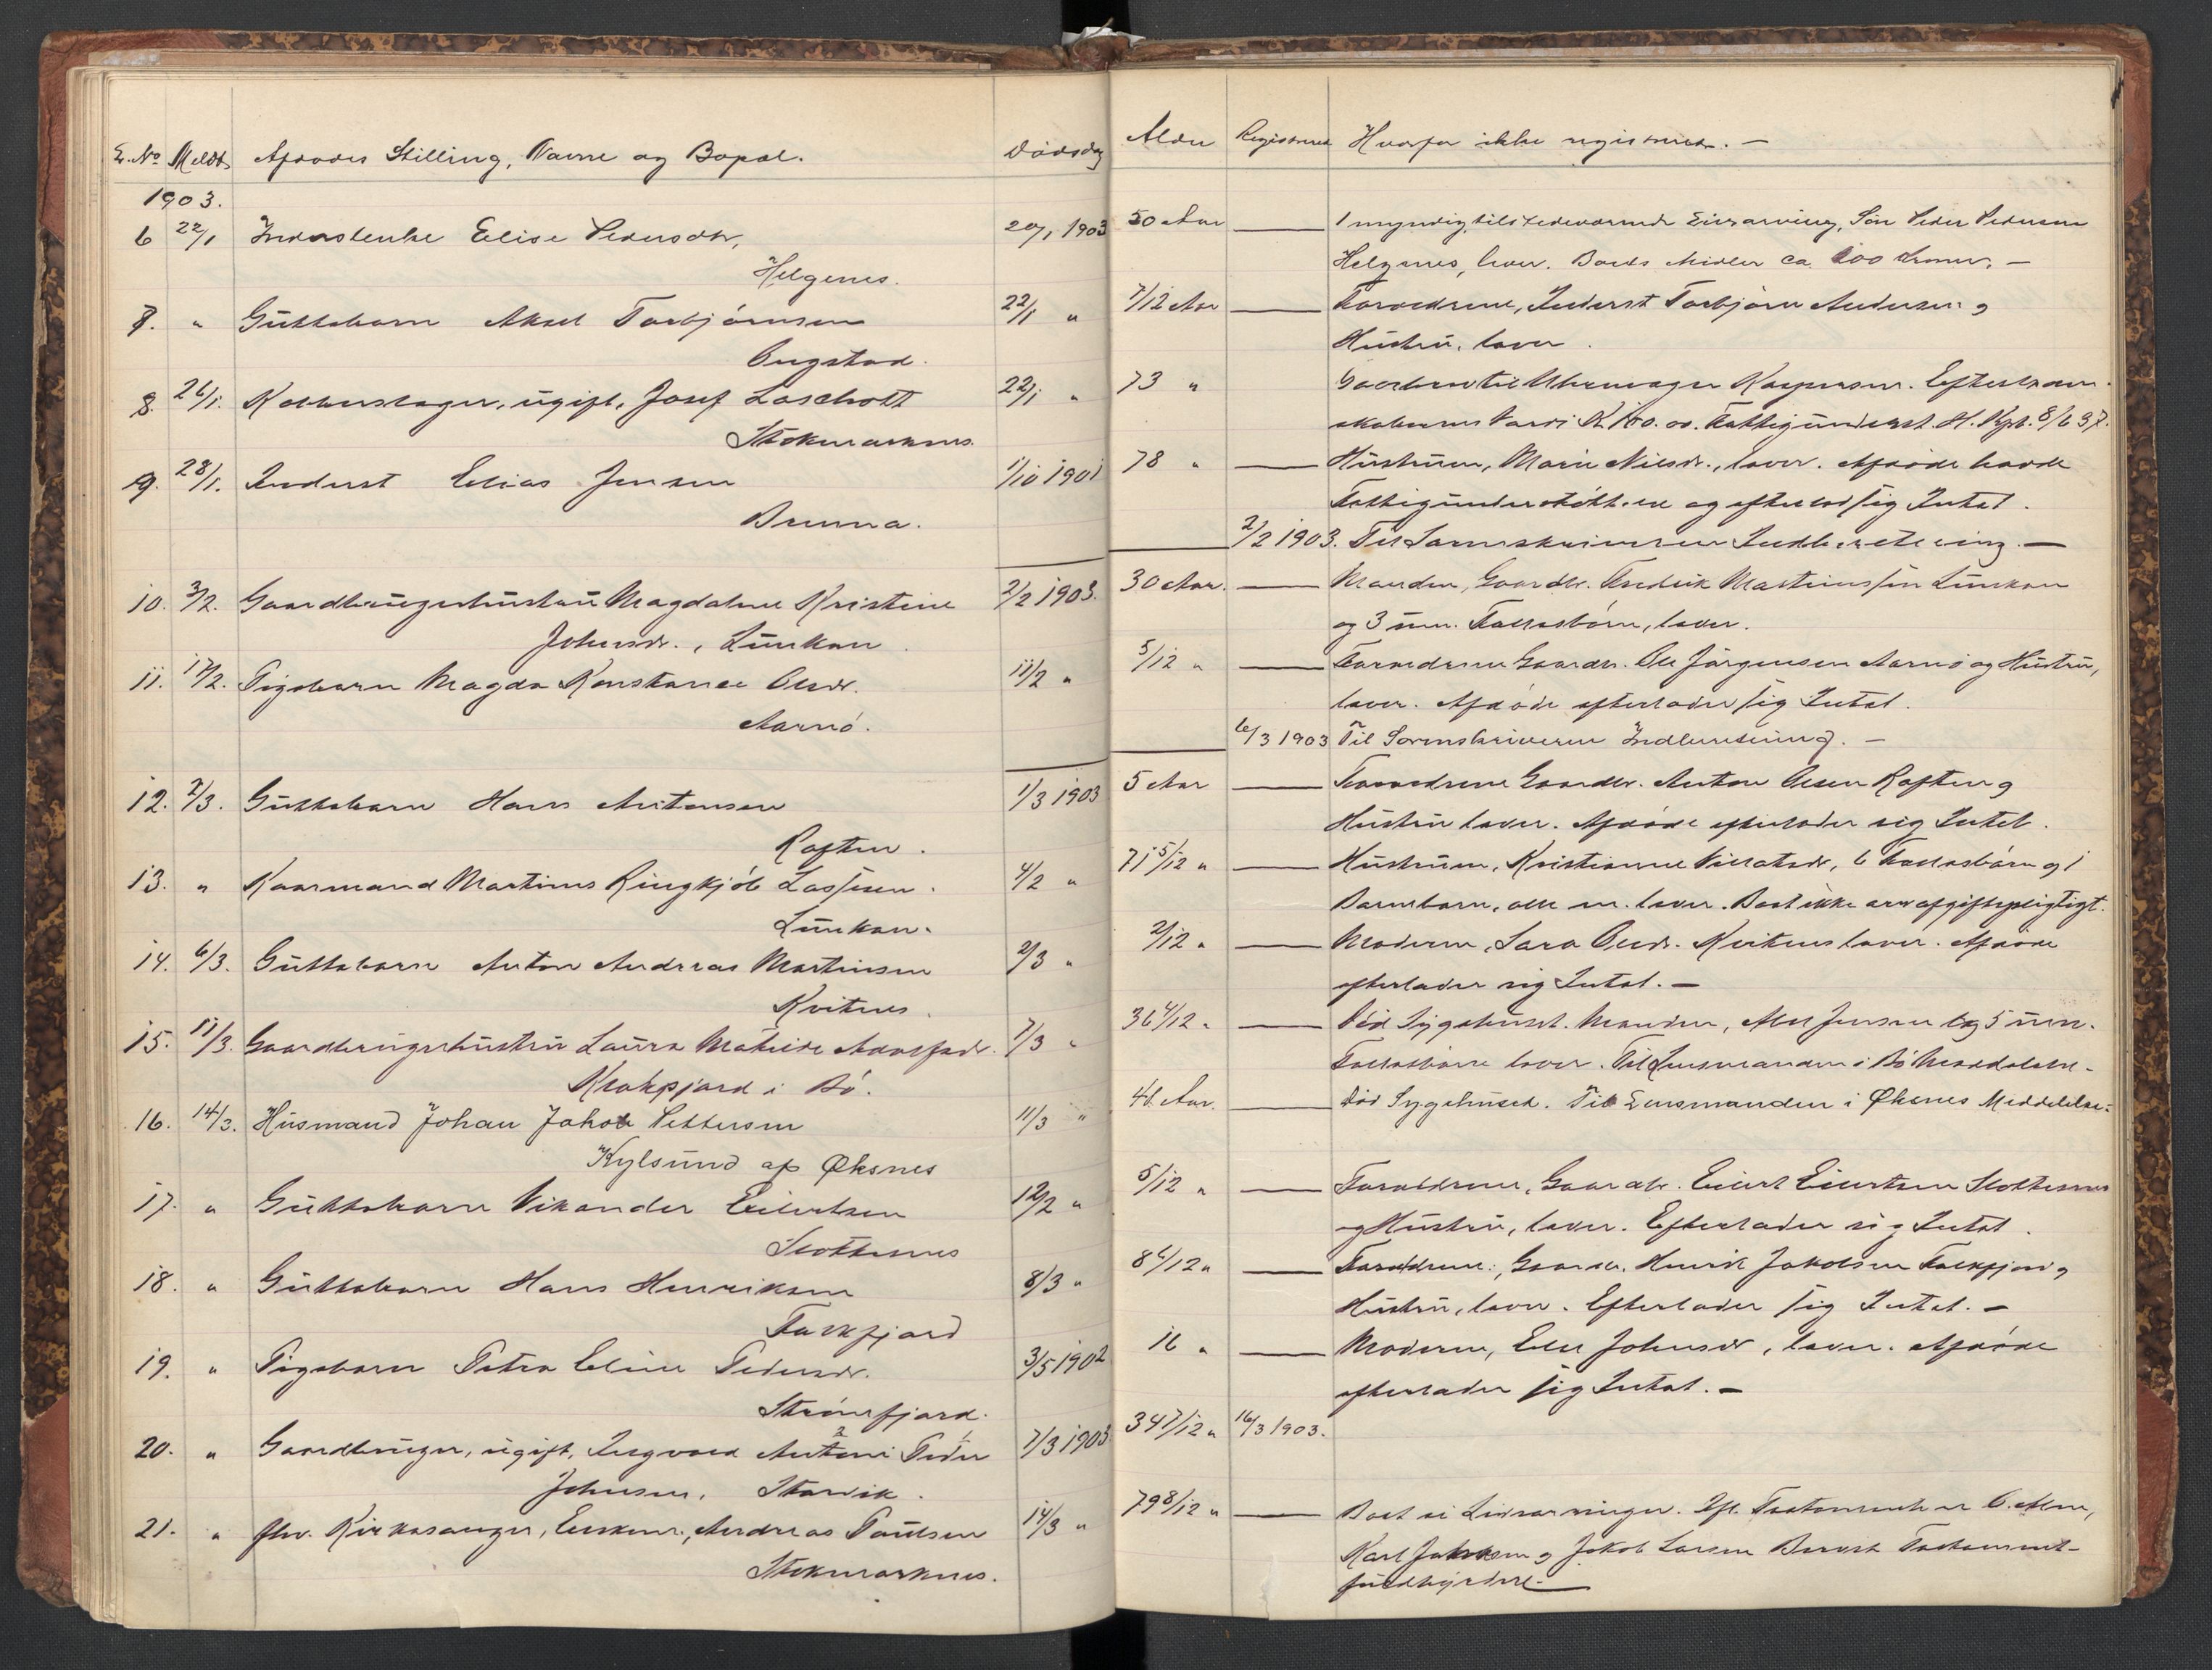 L. No Meldt Afdødes Stilling, Navn og Bopæl. Dødsdag
1903.
6 22/1 Inderstenke Elise Pedersdtr, 20/1 1903
Helgenes.
7. " Guttebarn Aksel Torbjørnsen 22/1 "
Ongstad.
8. 26/1. Kobberslager, ugift, Josef 22/1 "
Stokmarknes.
9. 28/1. Inderst Elias Jensen 1/10 1901
Brenna.
10. 3/2. Gaardbrugerhustru Magdalene Kristine 2/2 1903.
Johnsdr., Lunkan
11. 17/2. Pigebarn Magda Konstance Olsdr. 11/2 "
Aarnø.
12. 2/3. Guttebarn Hans Antonsen 1/3 1903
Raften.
13. " Kaarmand Martinus Ringkjøb Lassesen 4/2 "
Lunkan.
14. 6/3. Guttebarn Anton Andreas Martinsen 2/3 "
Kvitnes
15. 11/3. Gaardbrugerhustru Laura Matilde Adolfsdr. 7/3 "
Krakfjord i Bø.
16. 14/3. Husmand Johan Jakob Pettersen 11/3 "
Kylsund af Øksnes
17. " Guttebarn Vikander Eilertsen 12/2 "
Slottesnes
18. " Guttebarn Hans Henriksen 8/3 "
Falkfjord
19. " Pigebarn Petra Eline Pedersdr. 3/5 1902
Strømfjord.
20. " Gaardbruger, ugift, Ingvald Antoni Peder 7/3 1903
Johnsen, Storvik.
21. " fhv. Kirkesanger, Enkem., Andreas Paulsen 14/3 "
Stokmarknes.
Alder Registreret Hvorfor ikke registreret. —
50 Aar — 1 myndig, tilstedeværende Enearving, Søn Peder Pedersen
Helgenes, lever. Boets Midler ca. 100 Kroner. —
7/12 Aar — Forældrene, Inderst Torbjørn Andersen og
Hustru, lever.
73 " Gaarden til Uhrmager Kaspersen. Efterladen-
skabernes Værdi K. 100.00. Fattigunderst. H. Kpt. 8/6 97.
78 " — Hustruen, Marie Nilsdr., lever. Afdøde havde
Fattigunderstøttelse og efterlod sig Intet.
2/2 1903. Til Sorenskriveren Indberetning. —
30 Aar. — Manden, Gaardbr. Fredrik Martinussen Lunkan
og 3 um. Fællesbørn, lever.
5/12 " — Forældrene Gaardbr. Ole Jørgensen Aarnø og Hustru,
lever. Afdøde efterlader sig Intet.
6/3 1903 Til Sorenskriveren Indberetning. —
5 Aar — Forældrene Gaardbr. Anton Olsen Raften og
Hustru lever. Afdøde efterlader sig Intet.
71 5/12 " — Hustruen, Kristianne Villatsdr, 6 Fællesbørn og 1
Barnebarn, alle m. lever. Boet ikke arveafgiftspligtigt.
2/12 " — Moderen, Sara Olsdr. Kvitnes lever. Afdøde
efterlader sig Intet. —
36 4/12 " — Død Sygehuset. Manden, Albt Jensen og 5 um.
Fællesbørn lever. Til Lensmanden i Bø Meddelelse.
46 Aar. — Død Sygehuset. Til Lensmanden i Øksnes Meddelelse.
5/12 " — Forældrene, Gaardbr. Eilert Eilertsen Slottesnes
og Hustru, lever. Efterlader sig Intet.
8 6/12 " — Forældrene, Gaardbr. Henrik Jakobsen Falkfjord og
Hustru, lever. Efterlader sig Intet. —
16 " — Moderen, Else Johnsdr, lever. Afdøde
efterlader sig Intet. —
34 7/12 " 16/3 1903.
79 8/12 " — Boet ei Livsarvinger. Ifl. Testamente er
Karl Jakobsen og Jakob Larsen Testament-
fuldbyrdere. —